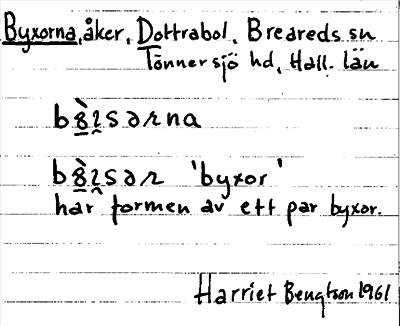 Byxorna, åker, Dottrabol, Breareds sn
Tönnersjö hd, Hall. län
'byxor'
har formen av ett par byxor.
Harriet Bengtson 1961